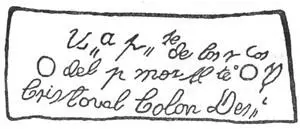 U,, a p,, te de los r cos
del p mor All te D
Cristoval Colon Des,,